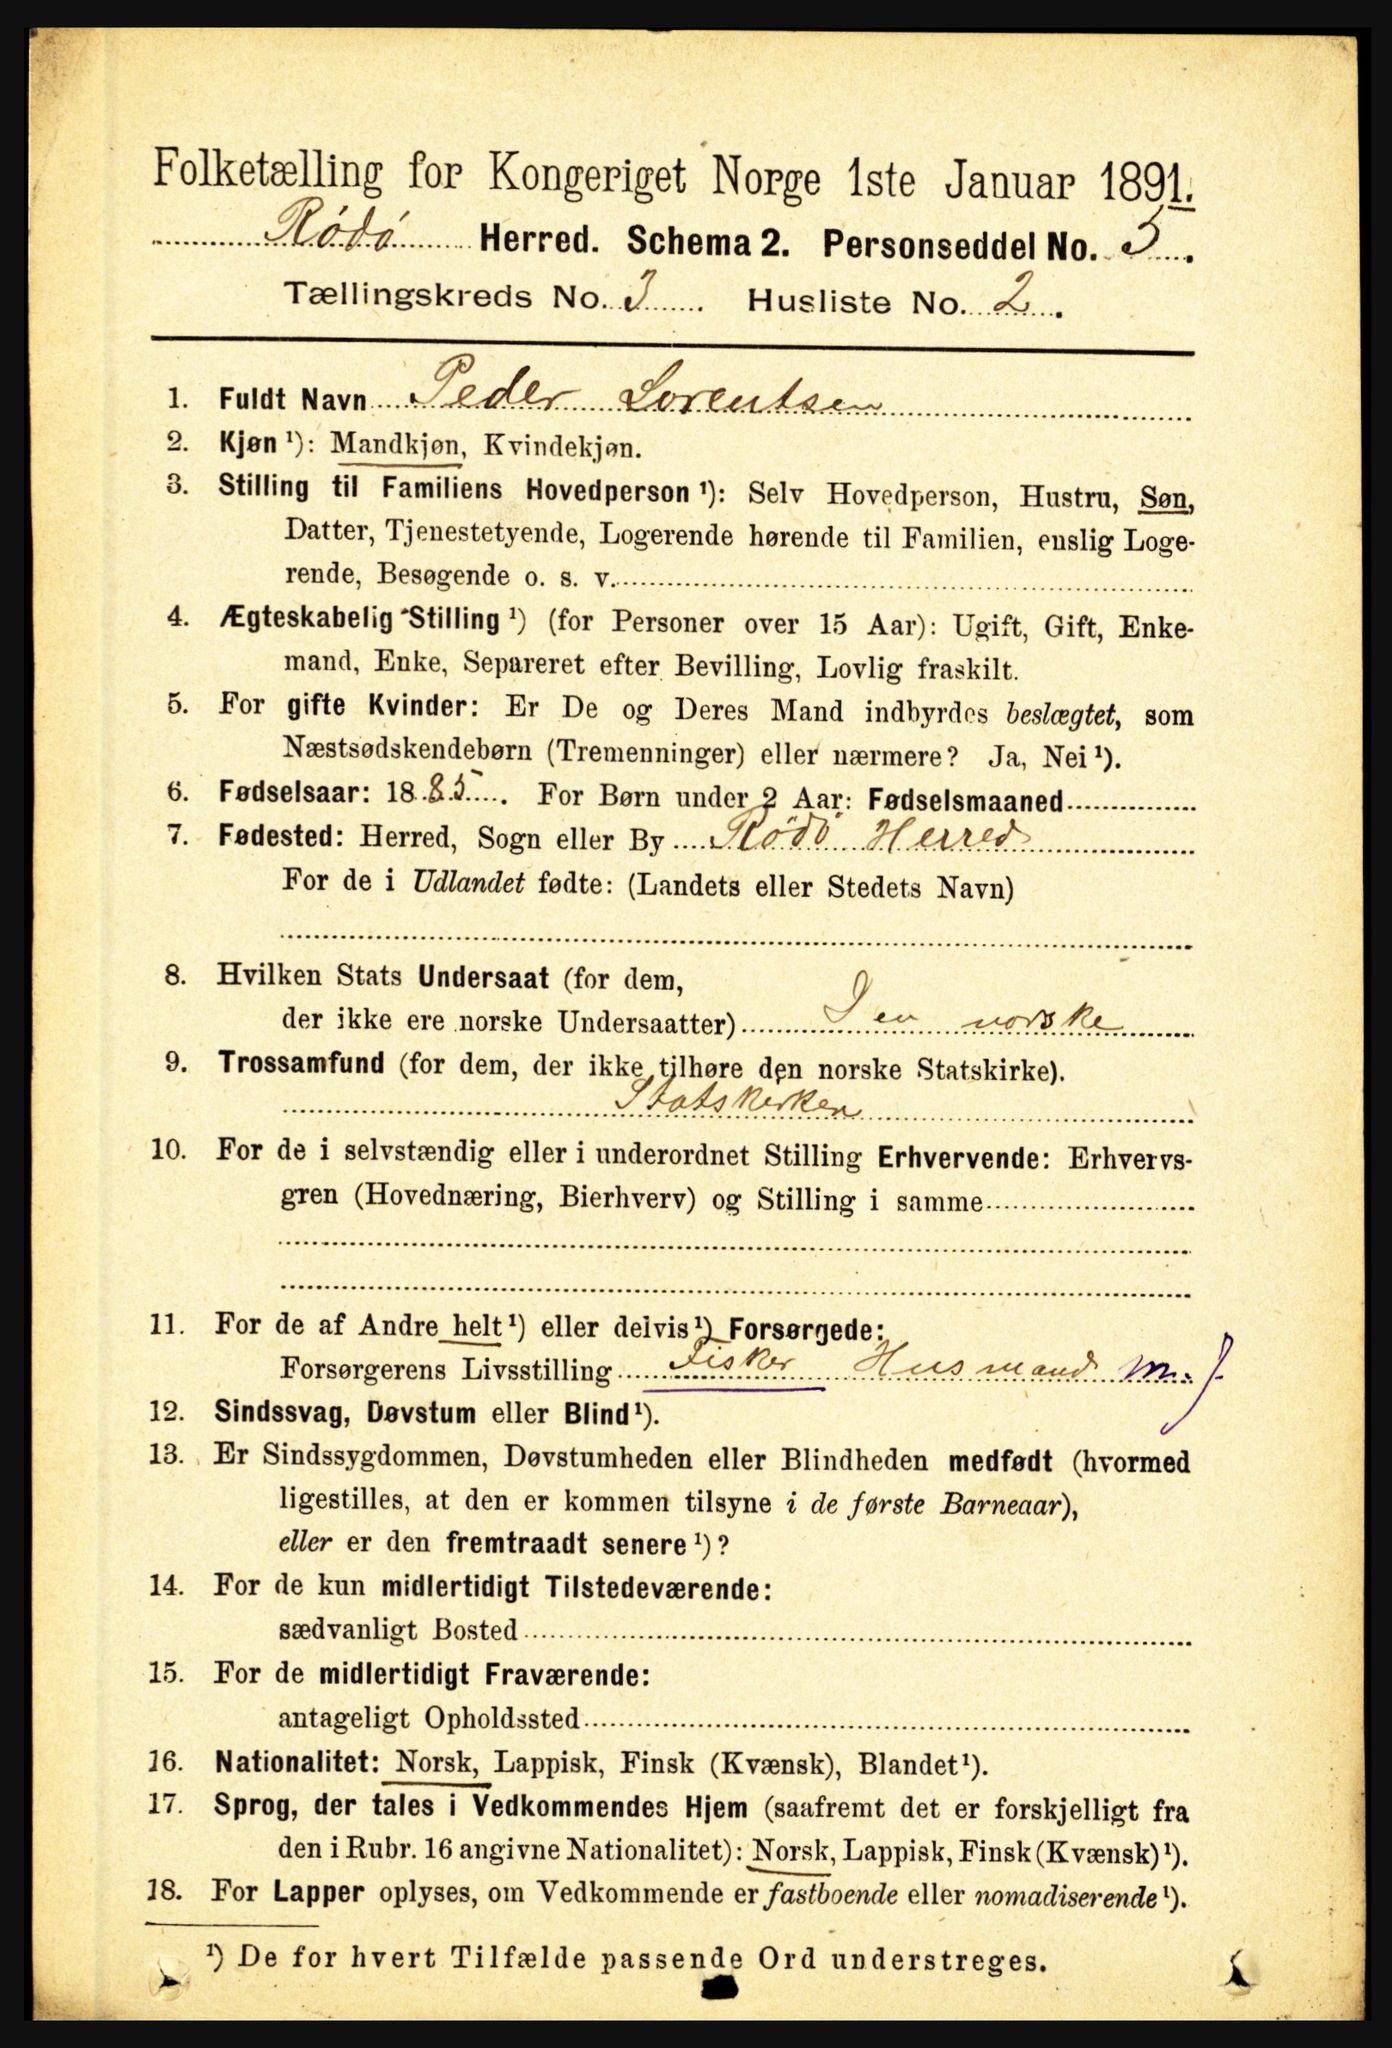 Folketælling for Kongeriget Norge 1ste Januar 1891.
Rödö Herred. Schema 2. Personseddel No. 5.
Tællingskreds No. 3. Husliste No. 2.
1. Fuldt Navn Peder Lorentsen
2. Kjøn ¹): Mandkjøn, Kvindekjøn.
3. Stilling til Familiens Hovedperson ¹): Selv Hovedperson, Hustru, Søn,
Datter, Tjenestetyende, Logerende hørende til Familien, enslig Loge-
rende, Besøgende o. s. v.
4. Ægteskabelig Stilling ¹) (for Personer over 15 Aar): Ugift, Gift, Enke-
mand, Enke, Separeret efter Bevilling, Lovlig fraskilt.
5. For gifte Kvinder: Er De og Deres Mand indbyrdes beslægtet, som
Næstsødskendebørn (Tremenninger) eller nærmere? Ja, Nei ¹).
6. Fødselsaar: 1885. For Børn under 2 Aar: Fødselsmaaned
7. Fødested: Herred, Sogn eller By Rödö Herred
For de i Udlandet fødte: (Landets eller Stedets Navn)
8. Hvilken Stats Undersaat (for dem,
der ikke ere norske Undersaatter) Den norske
9. Trossamfund (for dem, der ikke tilhøre den norske Statskirke).
Statskerken
10. For de i selvstændig eller i underordnet Stilling Erhvervende: Erhvervs-
gren (Hovednæring, Bierhverv) og Stilling i samme
11. For de af Andre helt ¹) eller delvis ¹) Forsørgede:
Forsørgerens Livsstilling Fisker Husmand m. J.
12. Sindssvag, Døvstum eller Blind ¹).
13. Er Sindssygdommen, Døvstumheden eller Blindheden medfødt (hvormed
ligestilles, at den er kommen tilsyne i de første Barneaar),
eller er den fremtraadt senere ¹)?
14. For de kun midlertidigt Tilstedeværende:
sædvanligt Bosted
15. For de midlertidigt Fraværende:
antageligt Opholdssted
16. Nationalitet: Norsk, Lappisk, Finsk (Kvænsk), Blandet ¹).
17. Sprog, der tales i Vedkommendes Hjem (saafremt det er forskjelligt fra
den i Rubr. 16 angivne Nationalitet): Norsk, Lappisk, Finsk (Kvænsk) ¹).
18. For Lapper oplyses, om Vedkommende er fastboende eller nomadiserende ¹).
¹) De for hvert Tilfælde passende Ord understreges.